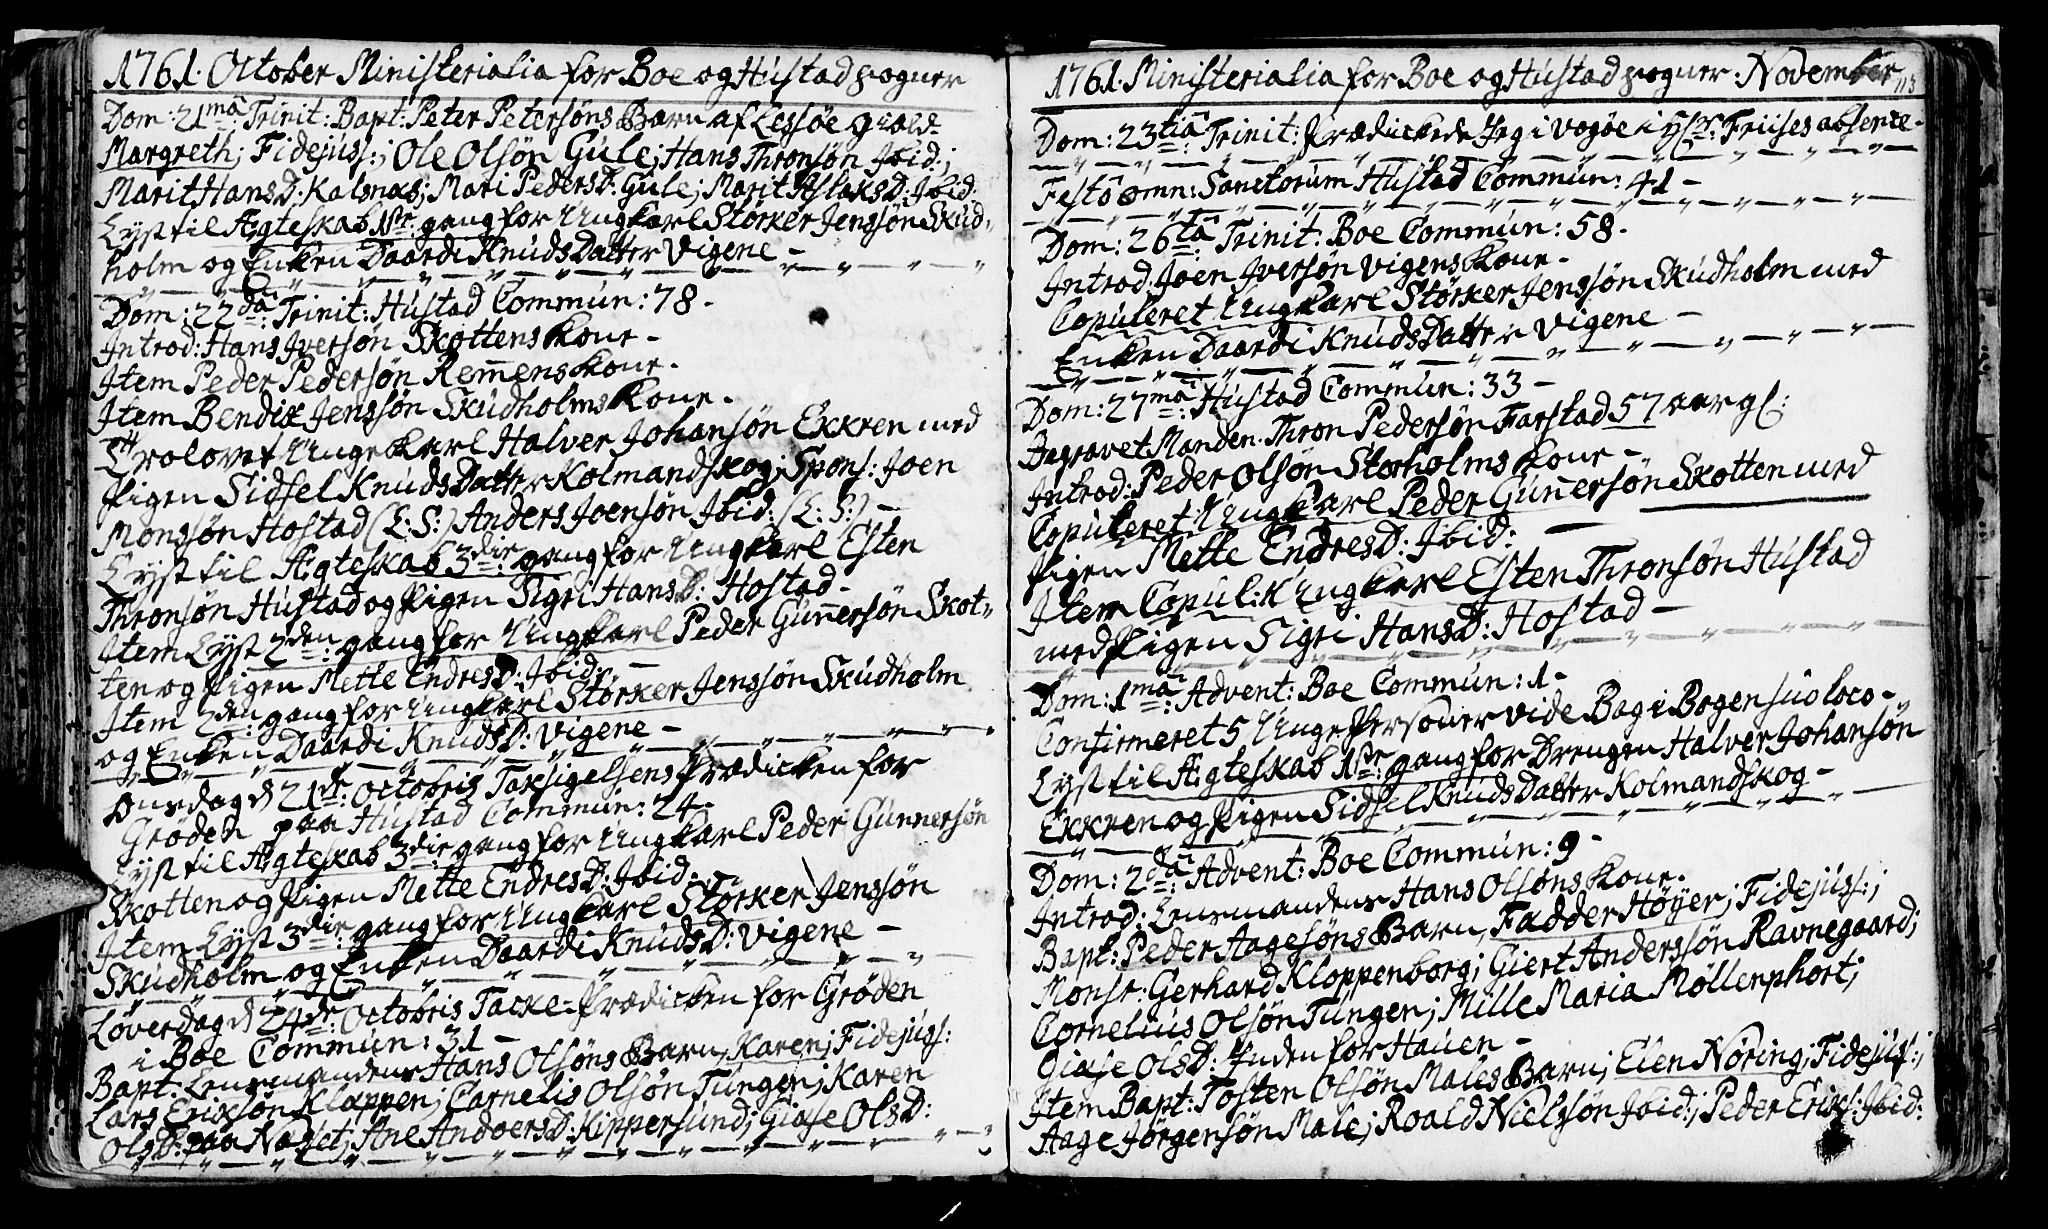 1761. October Ministerialia for Boe og Hustad sogner
Dom: 21ma Trinit: Bapt: Peter Petersöns Barn af Lessöe
Margreth; Fidejuss:; Ole Olsön Gule; Hans Thronsön Jbid:;
Marit HansD: Kalsnæs; Mari PedersD: Gule; Marit AslaksD: Jbid:
Lyst til Ægteskab 1ste gang for Ungkarl Störker Jenssön Skud-
holm og Enken Daardi KnudsDatter Vigene -
Dom: 22da Trinit: Hustad Commun: 78.
Introd: Hans Jversön Skottens Kone -
Jtem Peder Pedersön Remens Kone -
Jtem Bendix Jenssön Skudholms Kone -
Trolovet Ungekarl Halver Johansön Ekkren med
Pigen Sidsel KnudsDatter Kolmandskog; Spons: Joen
Monsön Hostad (L: S:) Anders Joensön Jbid: (L: S:) -
Lyst til Ægteskab 3die gang for Ungkarl Esten
Thronsön Hustad og Pigen Sigri HansD: Hostad -
Jtem Lyst 2den gang for Ungkarl Peder Gunnersön Skot-
ten og Pigen Mette EndresD: Jbid: -
Jtem 2den gang for Ungkarl Störker Jenssön Skudholm
og Enken Daardi KnudsD: Vigene -
Onsdag d 21de Octobris Taksigelsens Prædicken for
Gröden paa Hustad Commun: 24.
Lyst til Ægteskab 3die gang for Ungkarl Peder Gunnersön
Skotten og Pigen Mette EndresD: Jbid: -
Jtem Lyst 3die gang for Ungkarl Störker Jenssön
Skudholm og Enken Daardi KnudsD: Vigene -
Löverdag d 24de Octobris Tacke-Prædicken for Gröden
i Boe Commun: 31 -
Bapt: Lensmandens Hans Olsöns Barn, Karen; Fidejuss:
Lars Eriksön Klappen; Cornelis Olsön Tungen; Karen
OlsD: paa Naset; Ane AndversD: Kippersund; Giase OlsD:
1761. Ministerialia for Boe og Hustad sogner. November
113
Dom: 23tia Trinit: Prædickede Jeg i Vogöe i Hr: Friises absence -
Festo omn: Sanctorum Hustad Commun: 41 -
Dom: 26ta Trinit: Boe Commun: 58.
Introd: Joen Jversön Vigens Kone -
Copuleret Ungkarl Störker Jenssön Skudholm med
Enken Daardi KnudsDatter Vigene -
Dom: 27ma Hustad Commun: 33 -
Begravet Manden Thron Pedersön Farstad 57 aar gl:
Introd: Peder Olsön Storholms Kone -
Copuleret Ungkarl Peder Gunnersön Skotten med
Pigen Mette EndresD: Jbid: -
Jtem Copul: Ungkarl Esten Thronsön Hustad
med Pigen Sigri HansD: Hostad -
Dom: 1ma Advent: Boe Commun: 1 -
Confirmeret 5 Unge Personer vide Bag i Bogen suo loco -
Lyst til Ægteskab 1ste gang for Drengen Halver Johansön
Ekkren og Pigen Sidsel KnudsDatter Kolmandskog -
Dom: 2da Advent: Boe Commun: 9 -
Introd: Lensmandens Hans Olsöns Kone.
Bapt: Peder Aagesöns Barn, Fadder Höyer; Fidejuss:;
Monsr: Gerhard Kloppenborg; Giert Anderssön Ravnegaard;
Cornelius Olsön Tungen; Mille Maria Möllenphort;
Giase OlsD: Inden for Hauen -
Jtem Bapt: Tosten Olsön Males Barn; Elen Nöring; Fidejuss:;
Aage Jörgensön Male; Roald Nielssön Jbid:; Peder Eriks: Jbid: